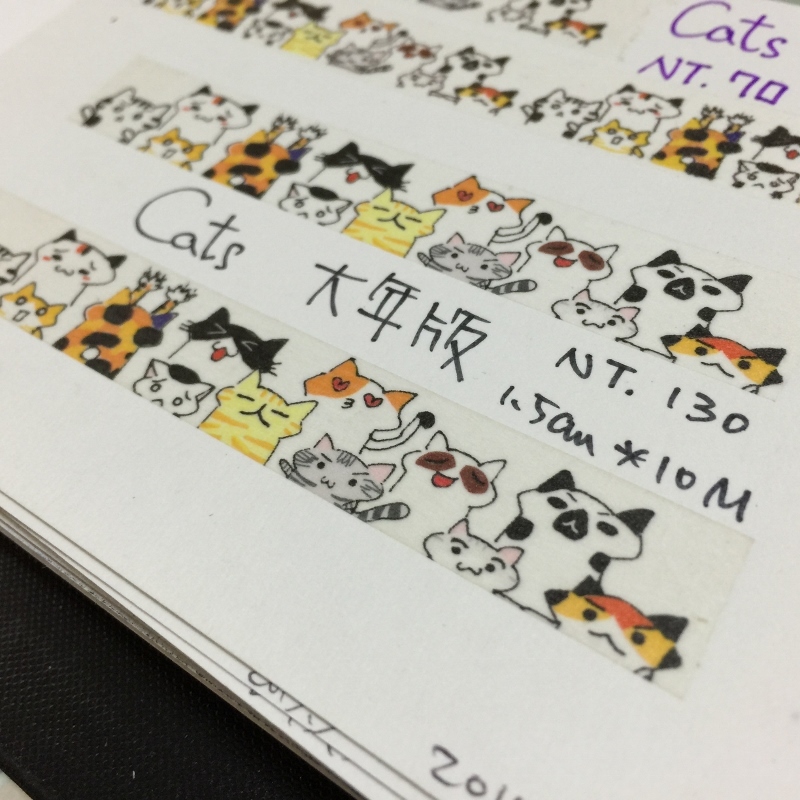 Cats
NT. 70
Cats 大年版 NT. 130
1.5cm * 10M